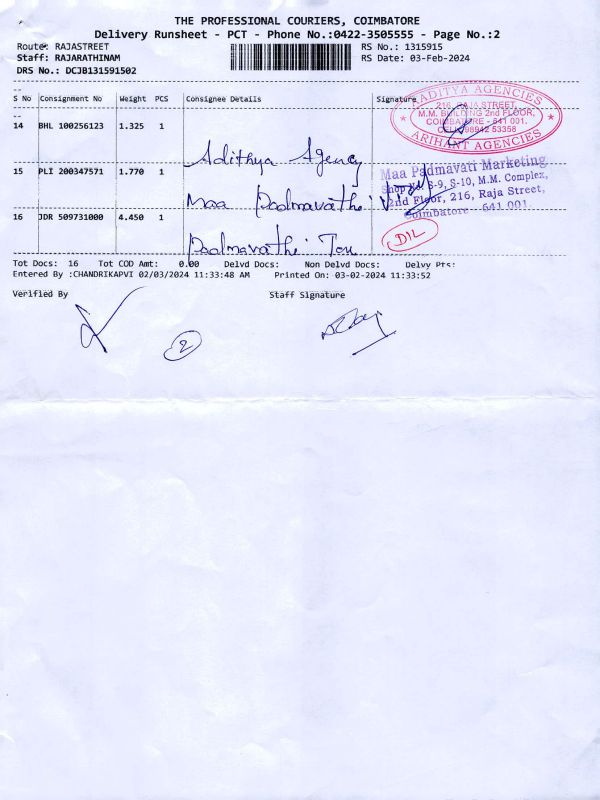 THE PROFESSIONAL COURIERS, COIMBATORE
Delivery Runsheet - PCT - Phone No.:0422-3505555 - Page No.:2
Route: RAJASTREET
RS No.: 1315915
Staff: RAJARATHINAM
RS Date: 03-Feb-2024
DRS No.: DCJB131591502
S No Consignment No Weight PCS Consignee Details Signature
ADITYA AGENCIES
216, RAJA STREET,
M.M. BUILDING 2nd FLOOR,
COIMBATORE - 641 001.
CELL: 98942 53358
ARIHANT AGENCIES
14 BHL 100256123 1.325 1
Adithya Agency
15 PLI 200347571 1.770 1
Maa Padmavathi
Maa Padmavati Marketing
Shop No. S-9, S-10, M.M. Complex,
2nd Floor, 216, Raja Street,
Coimbatore - 641 001.
16 JDR 509731000 4.450 1
Padmavathi
D/L
Tot Docs: 16 Tot COD Amt: 0.00 Delvd Docs: Non Delvd Docs: Delvy Pts:
Entered By :CHANDRIKAPVI 02/03/2024 11:33:48 AM Printed On: 03-02-2024 11:33:52
Verified By Staff Signature
2